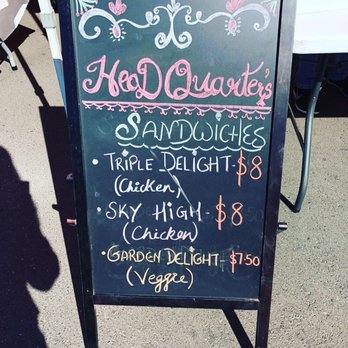 HeaDQuarter's
SANDWICHES
• TRIPLE DELIGHT-$8
(Chicken)
• SKY HIGH -$8
(Chicken)
• GARDEN DELIGHT- $7.50
(Veggie)